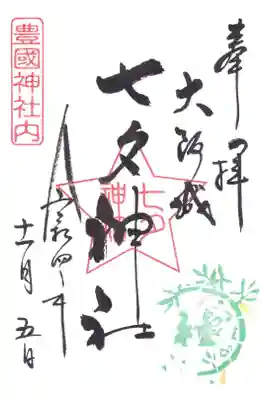 奉拝
大阪城
七夕神社
令和四年
十一月五日
豊國神社内
七夕
神社